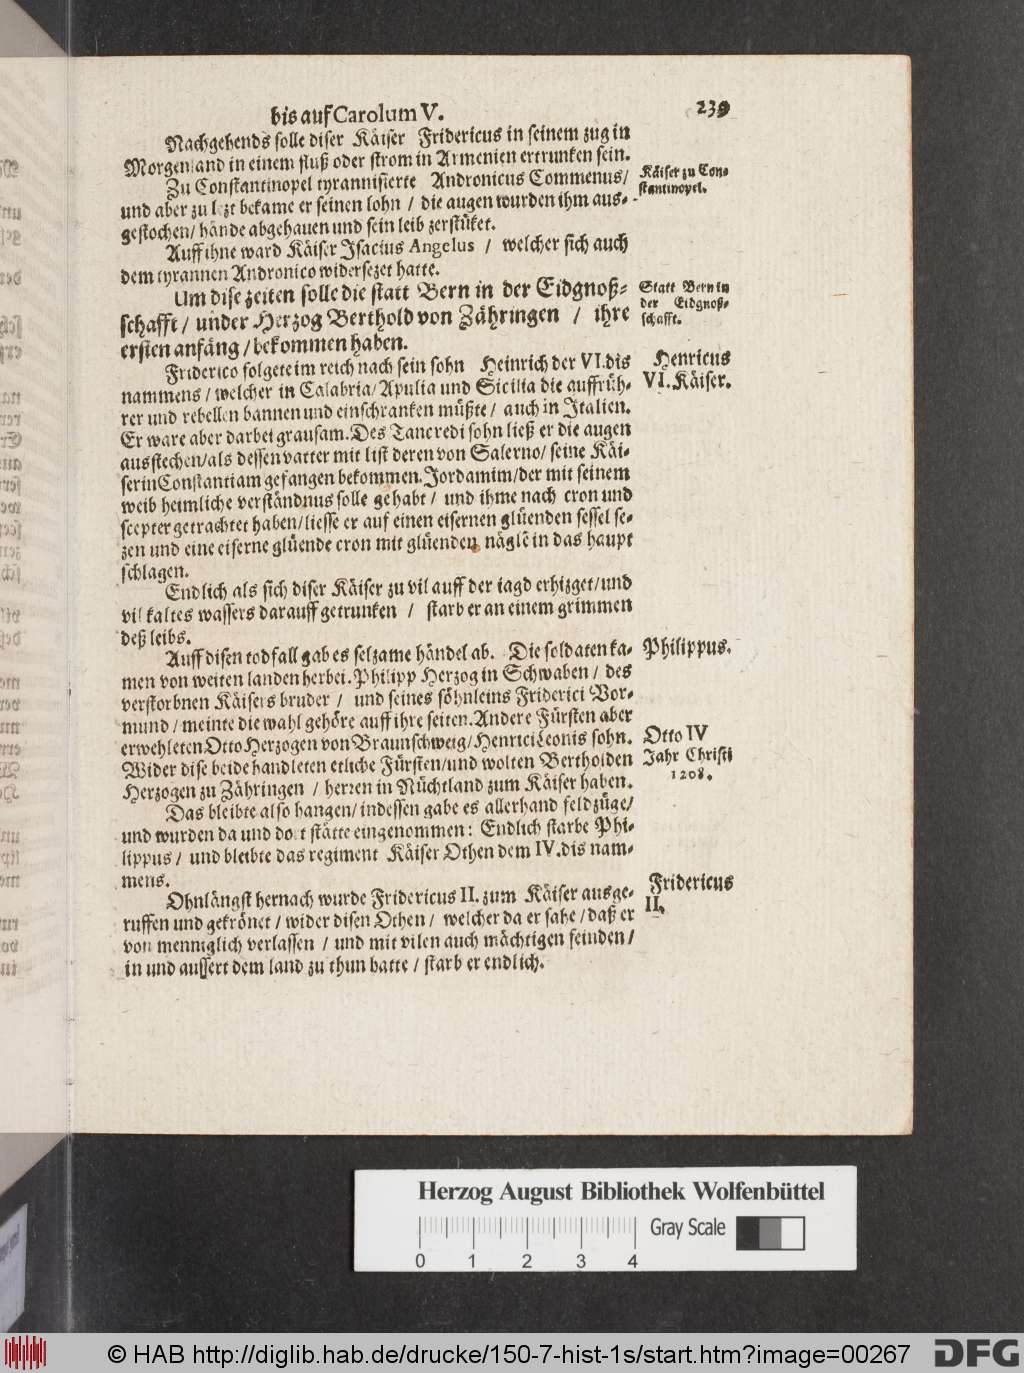 bis auf Carolum V. 239
Nachgehends solle diser Käiser Fridericus in seinem zug in
Morgenland in einem fluß oder strom in Armenien ertrunken sein.
Zu Constantinopel tyrannisierte Andronicus Commenus/
und aber zu lezt bekame er seinen lohn / die augen wurden ihm aus-
gestochen/ hände abgehauen und sein leib zerstüket.
Käiser zu Con-
stantinopel.
Auff ihne ward Käiser Isacius Angelus / welcher sich auch
dem tyrannen Andronico widersezet hatte.
Um dise zeiten solle die statt Bern in der Eidgnoß-
schafft / under Herzog Berthold von Zähringen / ihre
ersten anfäng / bekommen haben.
Statt Bern in
der Eidgnoß-
schafft.
Friderico folgete im reich nach sein sohn Heinrich der VI. dis
nammens / welcher in Calabria/ Apulia und Sicilia die auffrüh-
rer und rebellen bannen und einschranken müßte / auch in Italien.
Er ware aber darbei grausam. Des Tancredi sohn ließ er die augen
ausstechen/ als dessen vatter mit list deren von Salerno/ seine Käi-
serin Constantiam gefangen bekommen. Jordamim/ der mit seinem
weib heimliche verständnus solle gehabt / und ihme nach cron und
scepter getrachtet haben/ liesse er auf einen eisernen glüenden sessel se-
zen und eine eiserne glüende cron mit glüenden näglẽ in das haupt
schlagen.
Henricus
VI. Käiser.
Endlich als sich diser Käiser zu vil auff der iagd erhizget/ und
vil kaltes wassers darauff getrunken / starb er an einem grimmen
deß leibs.
Auff disen todfall gab es selzame händel ab. Die soldaten ka-
men von weiten landen herbei. Philipp Herzog in Schwaben / des
verstorbnen Käisers bruder / und seines söhnleins Friderici Vor-
mund / meinte die wahl gehöre auff ihre seiten. Andere Fürsten aber
erwehleten Otto Herzogen von Braunschweig/ Henrici Leonis sohn.
Wider dise beide handleten etliche Fürsten/ und wolten Bertholden
Herzogen zu Zähringen / herren in Nüchtland zum Käiser haben.
Philippus.
Otto IV
Jahr Christi
1208.
Das bleibte also hangen/ indessen gabe es allerhand feldzüge/
und wurden da und dort stätte eingenommen: Endlich starbe Phi-
lippus / und bleibte das regiment Käiser Othen dem IV. dis nam-
mens.
Ohnlängst hernach wurde Fridericus II. zum Käiser ausge-
ruffen und gekrönet / wider disen Othen / welcher da er sahe / daß er
von menniglich verlassen / und mit vilen auch mächtigen feinden /
in und aussert dem land zu thun hatte / starb er endlich.
Fridericus
II.
Herzog August Bibliothek Wolfenbüttel
Gray Scale
0 1 2 3 4
© HAB http://diglib.hab.de/drucke/150-7-hist-1s/start.htm?image=00267 DFG